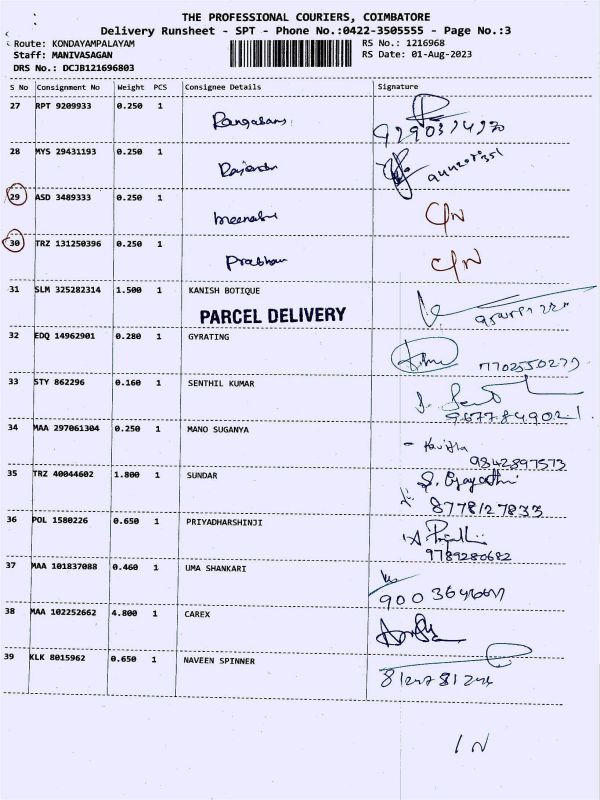 THE PROFESSIONAL COURIERS, COIMBATORE
Delivery Runsheet - SPT - Phone No.:0422-3505555 - Page No.:3
Route: KONDAYAMPALAYAM RS No.: 1216968
Staff: MANIVASAGAN RS Date: 01-Aug-2023
DRS No.: DCJB121696803
S No Consignment No Weight PCS Consignee Details Signature
27 RPT 9209933 0.250 1
28 MYS 29431193 0.250 1
29 ASD 3489333 0.250 1 C/N
30 TRZ 131250396 0.250 1 Prabhau C/N
31 SLM 325282314 1.500 1 KANISH BOTIQUE
PARCEL DELIVERY
32 EDQ 14962901 0.280 1 GYRATING
7702550279
33 STY 862296 0.160 1 SENTHIL KUMAR
9677849021
34 MAA 297061304 0.250 1 MANO SUGANYA
9842897573
35 TRZ 40044602 1.800 1 SUNDAR
8778127833
36 POL 1580226 0.650 1 PRIYADHARSHINJI
9789280682
37 MAA 101837088 0.460 1 UMA SHANKARI
38 MAA 102252662 4.800 1 CAREX
39 KLK 8015962 0.650 1 NAVEEN SPINNER
IN